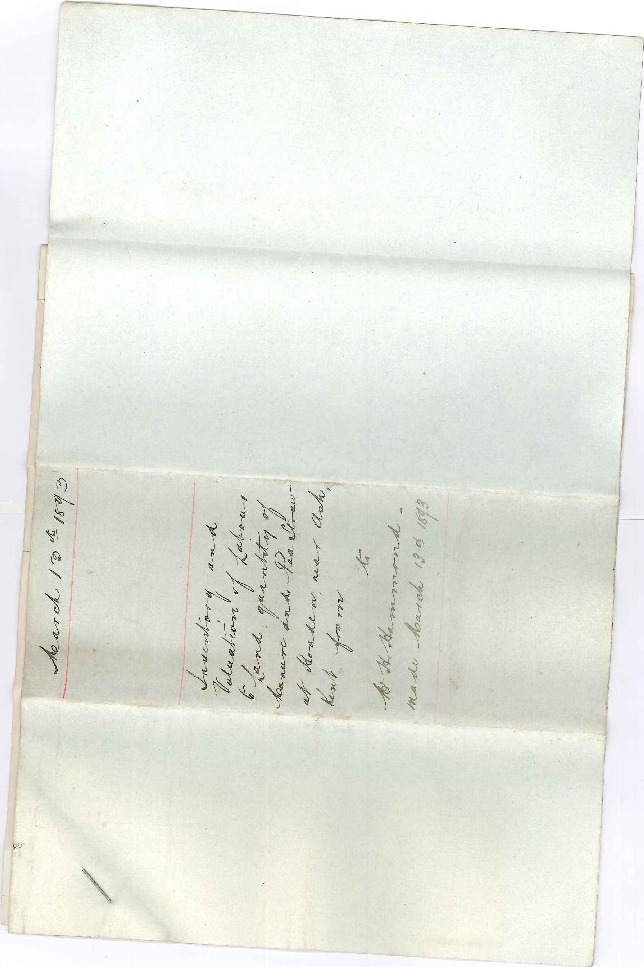 March 13th 1893
Inventory and
Valuation of Labour
to Land quantity of
Manure and Pea Straw
at Hoaden, near Ash,
Kent from
to
Mr H. Hammond -
made March 13th 1893